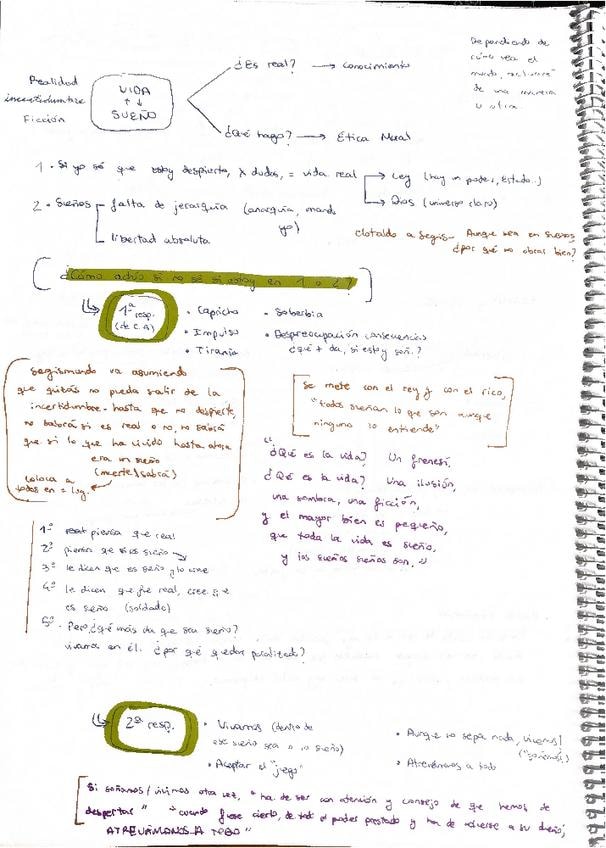 ¿Es real? → Conocimiento
Dependiendo de
cómo vea el
mundo,
de una manera
u otra.
Realidad
incertidumbre
Ficción
VIDA
↑↓
SUEÑO
¿Qué hago? → Ética Moral
1. Si yo sé que estoy despierto, x dudas, = vida real → Ley (hay un poder, Estado..)
→ Dios (universo claro)
2. Sueños falta de jerarquía (anarquía, mando
yo)
libertad absoluta
Clotaldo a Segis- Aunque sea en sueños,
¿por qué no obrar bien?
¿Cómo actúo si no sé si estoy en 1 o 2?
1ª
resp.
(de C.A)
• Capricho
• Impulso
• Tiranía
• Soberbia
• Despreocupación
¿qué + da, si estoy soñ.?
Segismundo va asumiendo
que quizás no pueda salir de la
incertidumbre. hasta que no despierte,
no sabrá si es real o no, no sabrá
que si lo que ha vivido hasta ahora
era un sueño
(muerte/sabrá)
coloca a
todos en = lug.
Se mete con el rey y con el rico,
"todos sueñan lo que son aunque
ninguno lo entiende"
"¿Qué es la vida? Un frenesí,
¿Qué es la vida? Una ilusión,
una sombra, una ficción,
y el mayor bien es pequeño,
que toda la vida es sueño,
y los sueños sueños son."
1º piensa que real
2º piensa que es sueño
3º le dicen que es sueño y lo cree
4º le dicen que fue real, cree que
es sueño (soldado)
5º. Pero ¿qué más da que sea sueño?
vivamos en él. ¿por qué quedar paralizado?
2ª resp.
• Vivamos (dentro de
ese sueño sea o no sueño)
• Aceptar el "juego"
• Aunque no sepa nada, vivamos!
("soñemos")
• Atrevámonos a todo
Si soñamos/vivimos otra vez, "ha de ser con atención y consejo de que hemos de
despertar" "cuando fuese cierto, es todo el poder prestado y ha de volverse a su dueño;
ATREVÁMONOS A TODO"